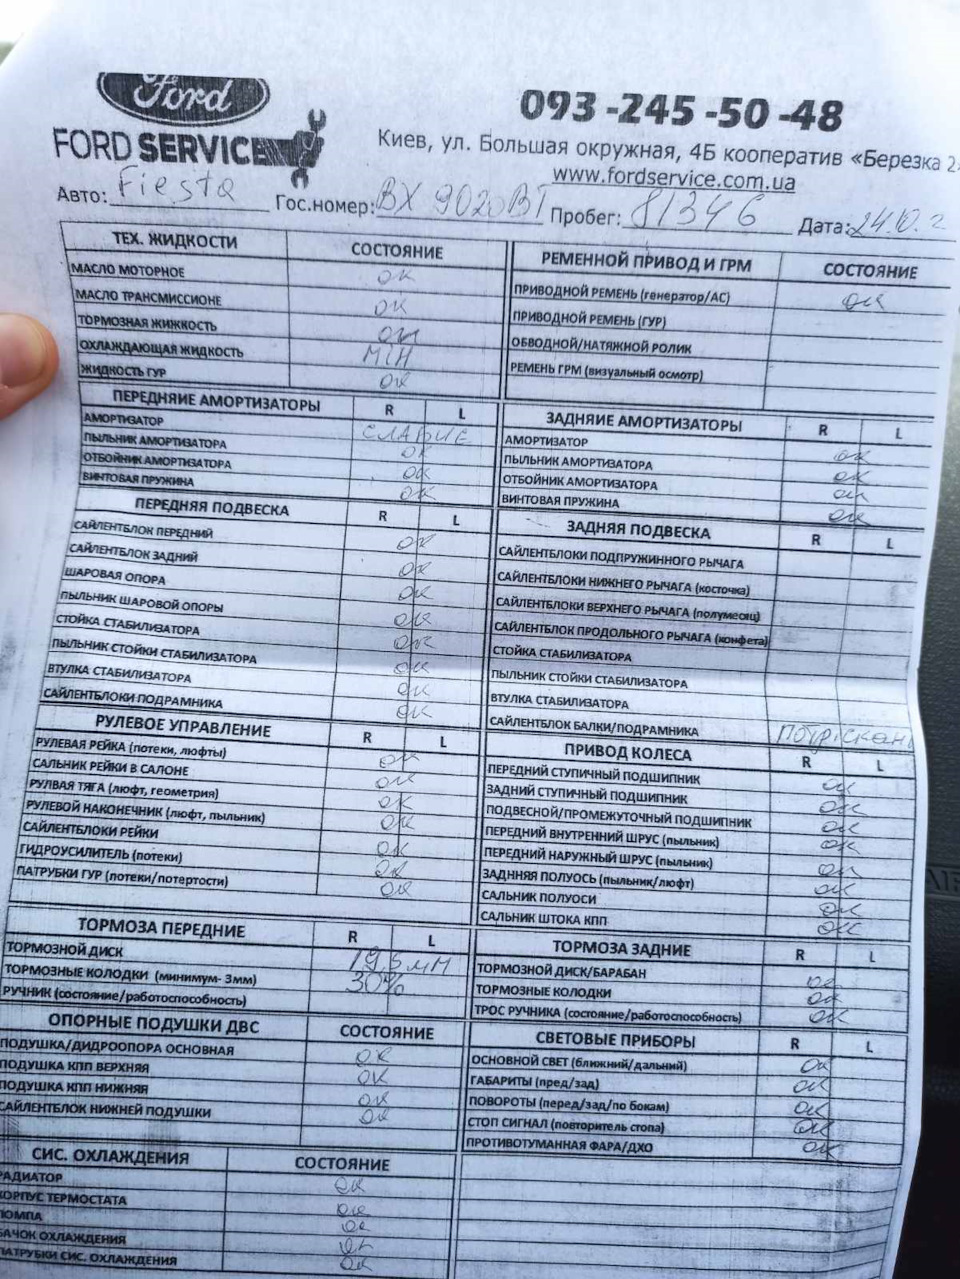 Ford
FORD SERVICE
093 -245 -50 -48
Киев, ул. Большая окружная, 4Б кооператив «Березка 2»
www.fordservice.com.ua
Авто: Fiesta Гос.номер: ВХ 9020ВТ Пробег: 81346 Дата: 24.10. 2
ТЕХ. ЖИДКОСТИ СОСТОЯНИЕ
МАСЛО МОТОРНОЕ ок
МАСЛО ТРАНСМИССИОНЕ ок
ТОРМОЗНАЯ ЖИЖКОСТЬ ок
ОХЛАЖДАЮЩАЯ ЖИДКОСТЬ MIN
ЖИДКОСТЬ ГУР ок
РЕМЕННОЙ ПРИВОД И ГРМ СОСТОЯНИЕ
ПРИВОДНОЙ РЕМЕНЬ (генератор/АС) ок
ПРИВОДНОЙ РЕМЕНЬ (ГУР)
ОБВОДНОЙ/НАТЯЖНОЙ РОЛИК
РЕМЕНЬ ГРМ (визуальный осмотр)
ПЕРЕДНЯИЕ АМОРТИЗАТОРЫ R L
АМОРТИЗАТОР СЛАБЫЕ
ПЫЛЬНИК АМОРТИЗАТОРА ок
ОТБОЙНИК АМОРТИЗАТОРА ок
ВИНТОВАЯ ПРУЖИНА ок
ЗАДНЯИЕ АМОРТИЗАТОРЫ R L
АМОРТИЗАТОР ок
ПЫЛЬНИК АМОРТИЗАТОРА ок
ОТБОЙНИК АМОРТИЗАТОРА ок
ВИНТОВАЯ ПРУЖИНА ок
ПЕРЕДНЯЯ ПОДВЕСКА R L
САЙЛЕНТБЛОК ПЕРЕДНИЙ ок
САЙЛЕНТБЛОК ЗАДНИЙ ок
ШАРОВАЯ ОПОРА ок
ПЫЛЬНИК ШАРОВОЙ ОПОРЫ ок
СТОЙКА СТАБИЛИЗАТОРА ок
ПЫЛЬНИК СТОЙКИ СТАБИЛИЗАТОРА ок
ВТУЛКА СТАБИЛИЗАТОРА ок
САЙЛЕНТБЛОКИ ПОДРАМНИКА ок
ЗАДНЯЯ ПОДВЕСКА R L
САЙЛЕНТБЛОКИ ПОДПРУЖИННОГО РЫЧАГА
САЙЛЕНТБЛОКИ НИЖНЕГО РЫЧАГА (косточка)
САЙЛЕНТБЛОКИ ВЕРХНЕГО РЫЧАГА (полумесяц)
САЙЛЕНТБЛОК ПРОДОЛЬНОГО РЫЧАГА (конфета)
СТОЙКА СТАБИЛИЗАТОРА
ПЫЛЬНИК СТОЙКИ СТАБИЛИЗАТОРА
ВТУЛКА СТАБИЛИЗАТОРА
САЙЛЕНТБЛОК БАЛКИ/ПОДРАМНИКА
РУЛЕВОЕ УПРАВЛЕНИЕ R L
РУЛЕВАЯ РЕЙКА (потеки, люфты) ок
САЛЬНИК РЕЙКИ В САЛОНЕ ок
РУЛВАЯ ТЯГА (люфт, геометрия) ок
РУЛЕВОЙ НАКОНЕЧНИК (люфт, пыльник) ок
САЙЛЕНТБЛОКИ РЕЙКИ ок
ГИДРОУСИЛИТЕЛЬ (потеки) ок
ПАТРУБКИ ГУР (потеки/потертости) ок
ПРИВОД КОЛЕСА R L
ПЕРЕДНИЙ СТУПИЧНЫЙ ПОДШИПНИК ок
ЗАДНИЙ СТУПИЧНЫЙ ПОДШИПНИК ок
ПОДВЕСНОЙ/ПРОМЕЖУТОЧНЫЙ ПОДШИПНИК ок
ПЕРЕДНИЙ ВНУТРЕННИЙ ШРУС (пыльник) ок
ПЕРЕДНИЙ НАРУЖНЫЙ ШРУС (пыльник) ок
ЗАДННЯЯ ПОЛУОСЬ (пыльник/люфт) ок
САЛЬНИК ПОЛУОСИ ок
САЛЬНИК ШТОКА КПП ок
ТОРМОЗА ПЕРЕДНИЕ R L
ТОРМОЗНОЙ ДИСК 19,5 мм
ТОРМОЗНЫЕ КОЛОДКИ (минимум- 3мм) 30%
РУЧНИК (состояние/работоспособность)
ТОРМОЗА ЗАДНИЕ R L
ТОРМОЗНОЙ ДИСК/БАРАБАН ок
ТОРМОЗНЫЕ КОЛОДКИ ок
ТРОС РУЧНИКА (состояние/работоспособность) ок
ОПОРНЫЕ ПОДУШКИ ДВС СОСТОЯНИЕ
ПОДУШКА/ДИДРООПОРА ОСНОВНАЯ ок
ПОДУШКА КПП ВЕРХНЯЯ ок
ПОДУШКА КПП НИЖНЯЯ ок
САЙЛЕНТБЛОК НИЖНЕЙ ПОДУШКИ ок
СВЕТОВЫЕ ПРИБОРЫ R L
ОСНОВНОЙ СВЕТ (ближний/дальний) ок
ГАБАРИТЫ (пред/зад) ок
ПОВОРОТЫ (перед/зад/по бокам) ок
СТОП СИГНАЛ (повторитель стопа) ок
ПРОТИВОТУМАННАЯ ФАРА/ДХО ок
СИС. ОХЛАЖДЕНИЯ СОСТОЯНИЕ
РАДИАТОР ок
КОРПУС ТЕРМОСТАТА ок
ПОМПА ок
БАЧОК ОХЛАЖДЕНИЯ ок
ПАТРУБКИ СИС. ОХЛАЖДЕНИЯ ок